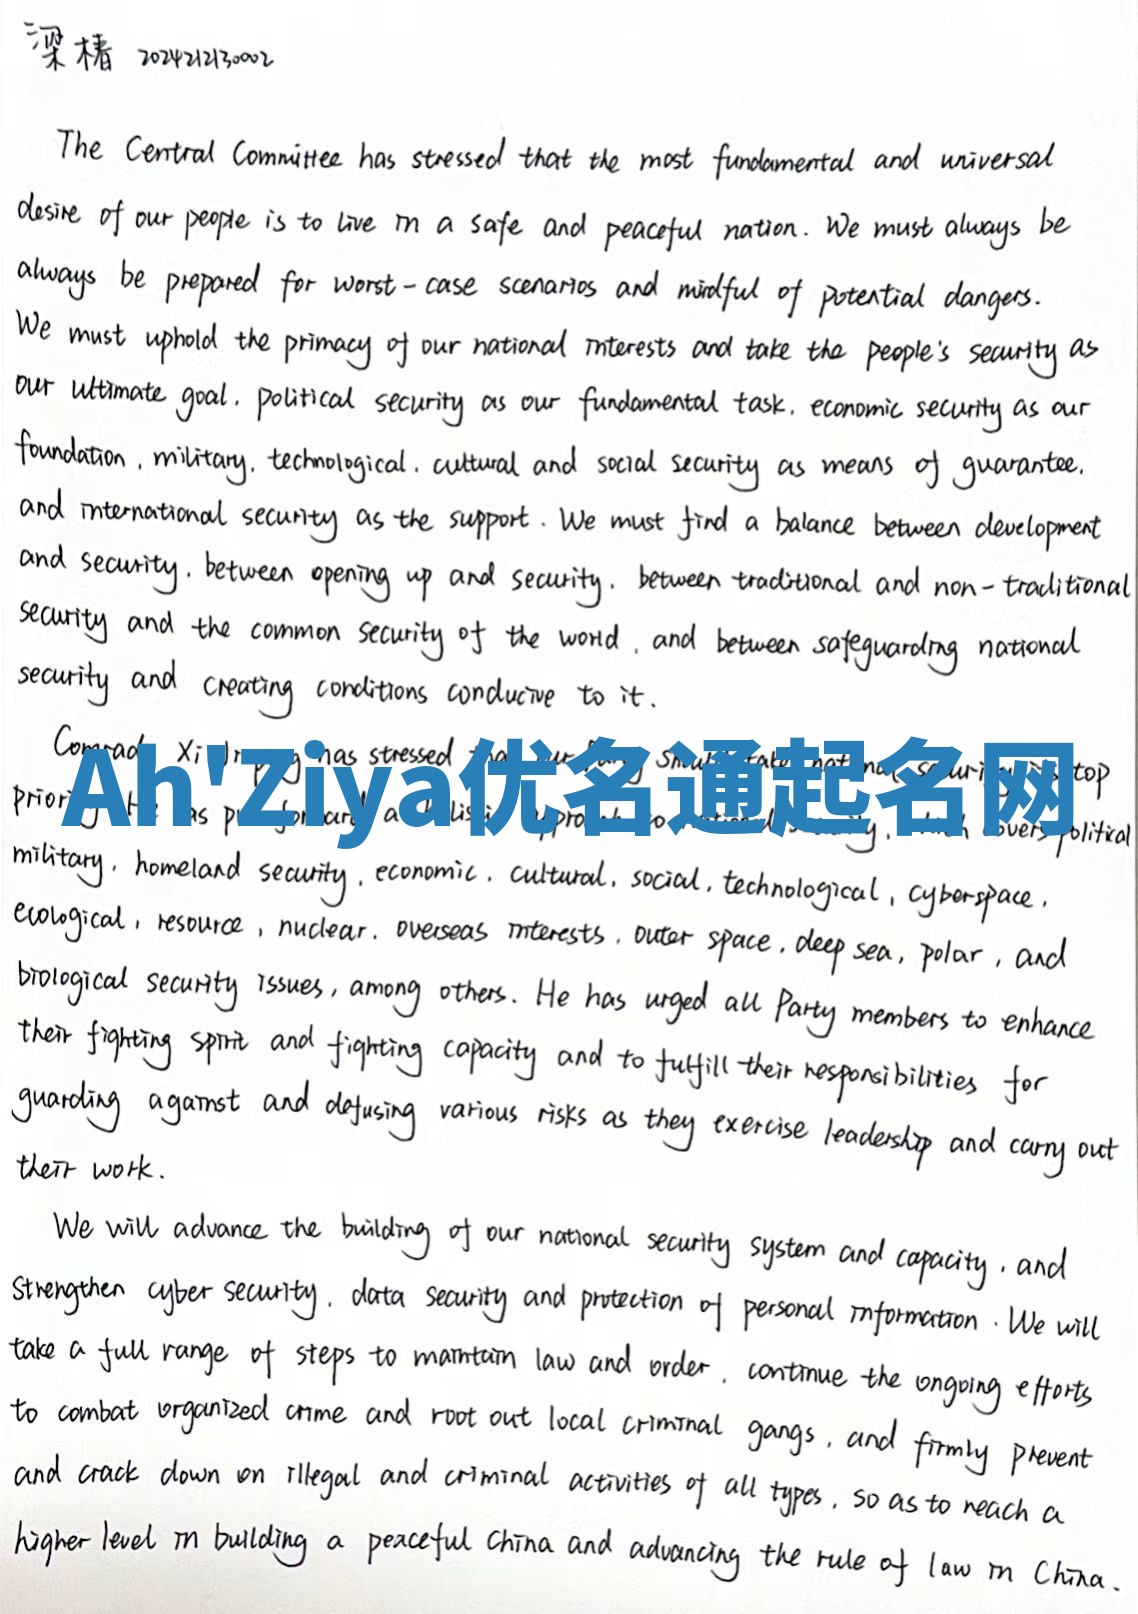 梁椿 2024212130002
The Central Committee has stressed that the most fundamental and universal
desire of our people is to live in a safe and peaceful nation. We must always be
always be prepared for worst-case scenarios and mindful of potential dangers.
We must uphold the primacy of our national interests and take the people's security as
our ultimate goal, political security as our fundamental task, economic security as our
foundation, military, technological, cultural and social security as means of guarantee,
and international security as the support. We must find a balance between development
and security, between opening up and security, between traditional and non-traditional
security and the common security of the world, and between safeguarding national
security and creating conditions conducive to it.
Xi has stressed top
Ah'Ziya优名通起名网
political
military, homeland security, economic, cultural, social, technological, cyberspace,
ecological, resource, nuclear, overseas interests, outer space, deep sea, polar, and
biological security issues, among others. He has urged all Party members to enhance
their fighting spirit and fighting capacity and to fulfill their responsibilities for
guarding against and defusing various risks as they exercise leadership and carry out
their work.
We will advance the building of our national security system and capacity, and
strengthen cyber security, data security and protection of personal information. We will
take a full range of steps to maintain law and order, continue the ongoing efforts
to combat organized crime and root out local criminal gangs, and firmly prevent
and crack down on illegal and criminal activities of all types, so as to reach a
higher level in building a peaceful China and advancing the rule of law in China.